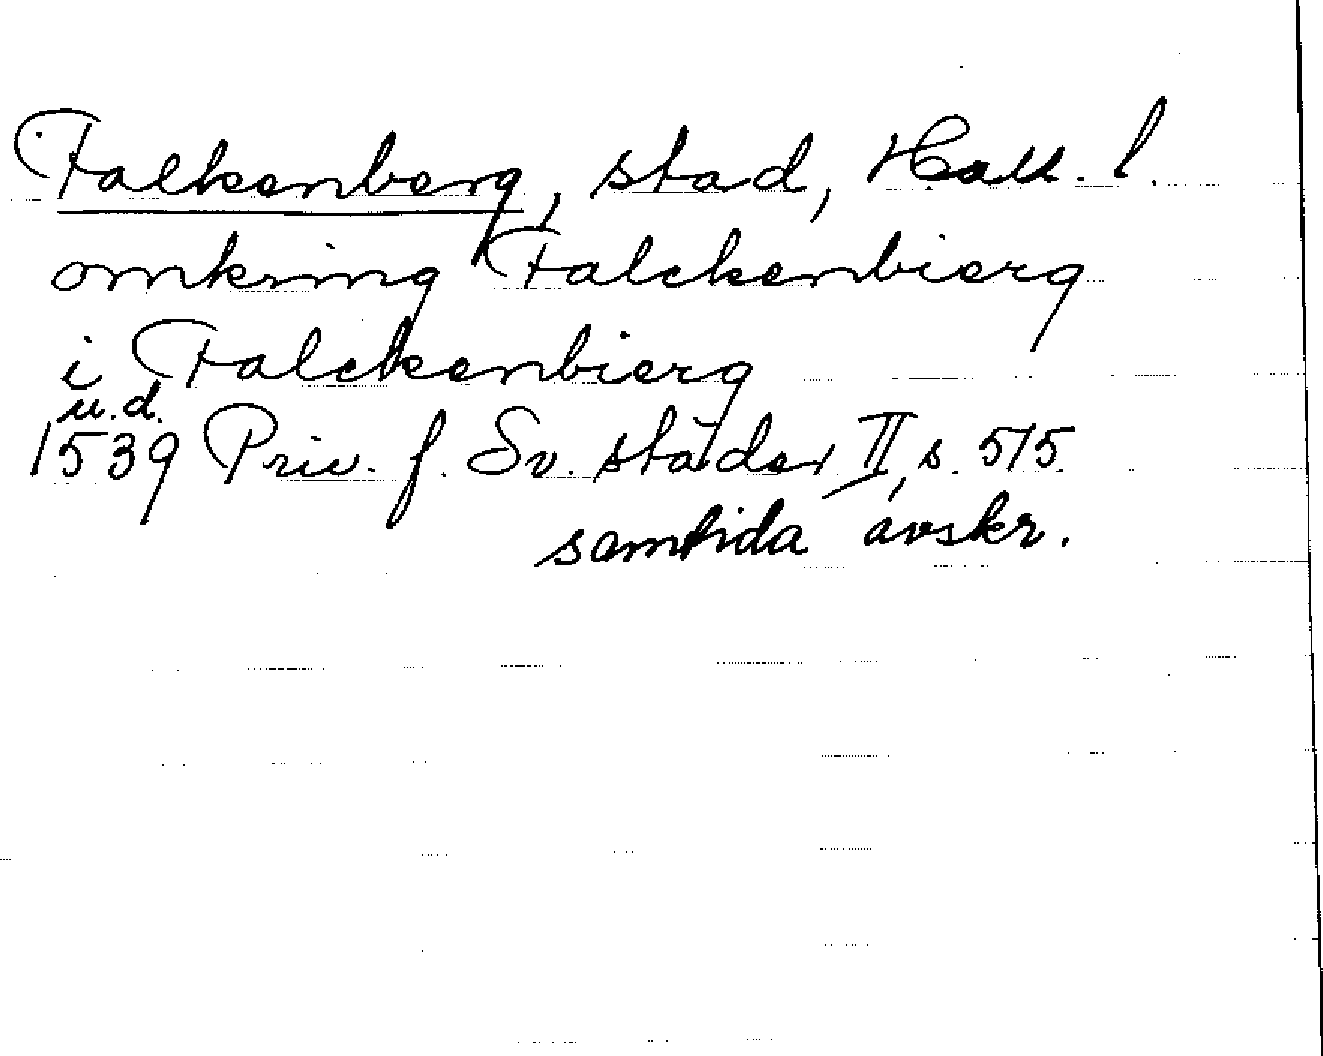 Falkenberg, stad, Hall. l.
omkring Falckenbierg
i Falckenbierg
u.d.
1539 Priv. f. Sv. städer II, s. 515.
samtida avskr.